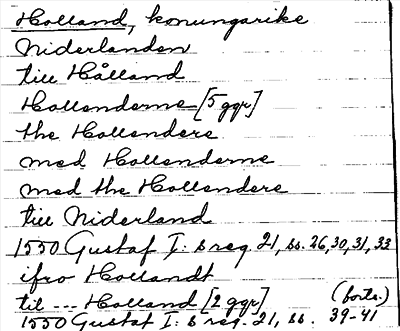 Holland, konungarike
Niderlanden
till Hålland
Hollenderne [5 ggr]
the Hollendere
med Hollenderne
med the Hollendere
till Niderland
1550 Gustaf I: s reg. 21, ss. 26, 30, 31, 33
ifro Hollandt
til --- Holland [2 ggr] (forts.)
1550 Gustaf I: s reg. 21, ss. 39-41